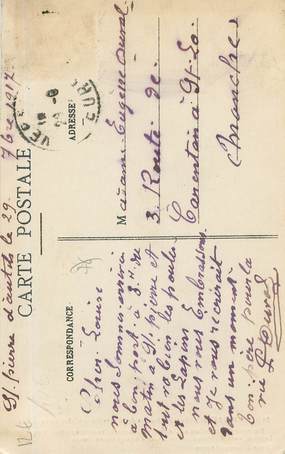 St pierre d'autils le 29 7bre 1917
CARTE POSTALE
CORRESPONDANCE
ADRESSE
Cher Louise
nous sommes arrivé
à bon port à 8h du
matin à St pierre et
tout va bien les poules
et les Lapins
nous vous Embrassons
et je vous récrirait
dans un moment
bon
pour la
vie
Madame Eugène Duval
3 Route de
Carentan à St-Lo
Manche